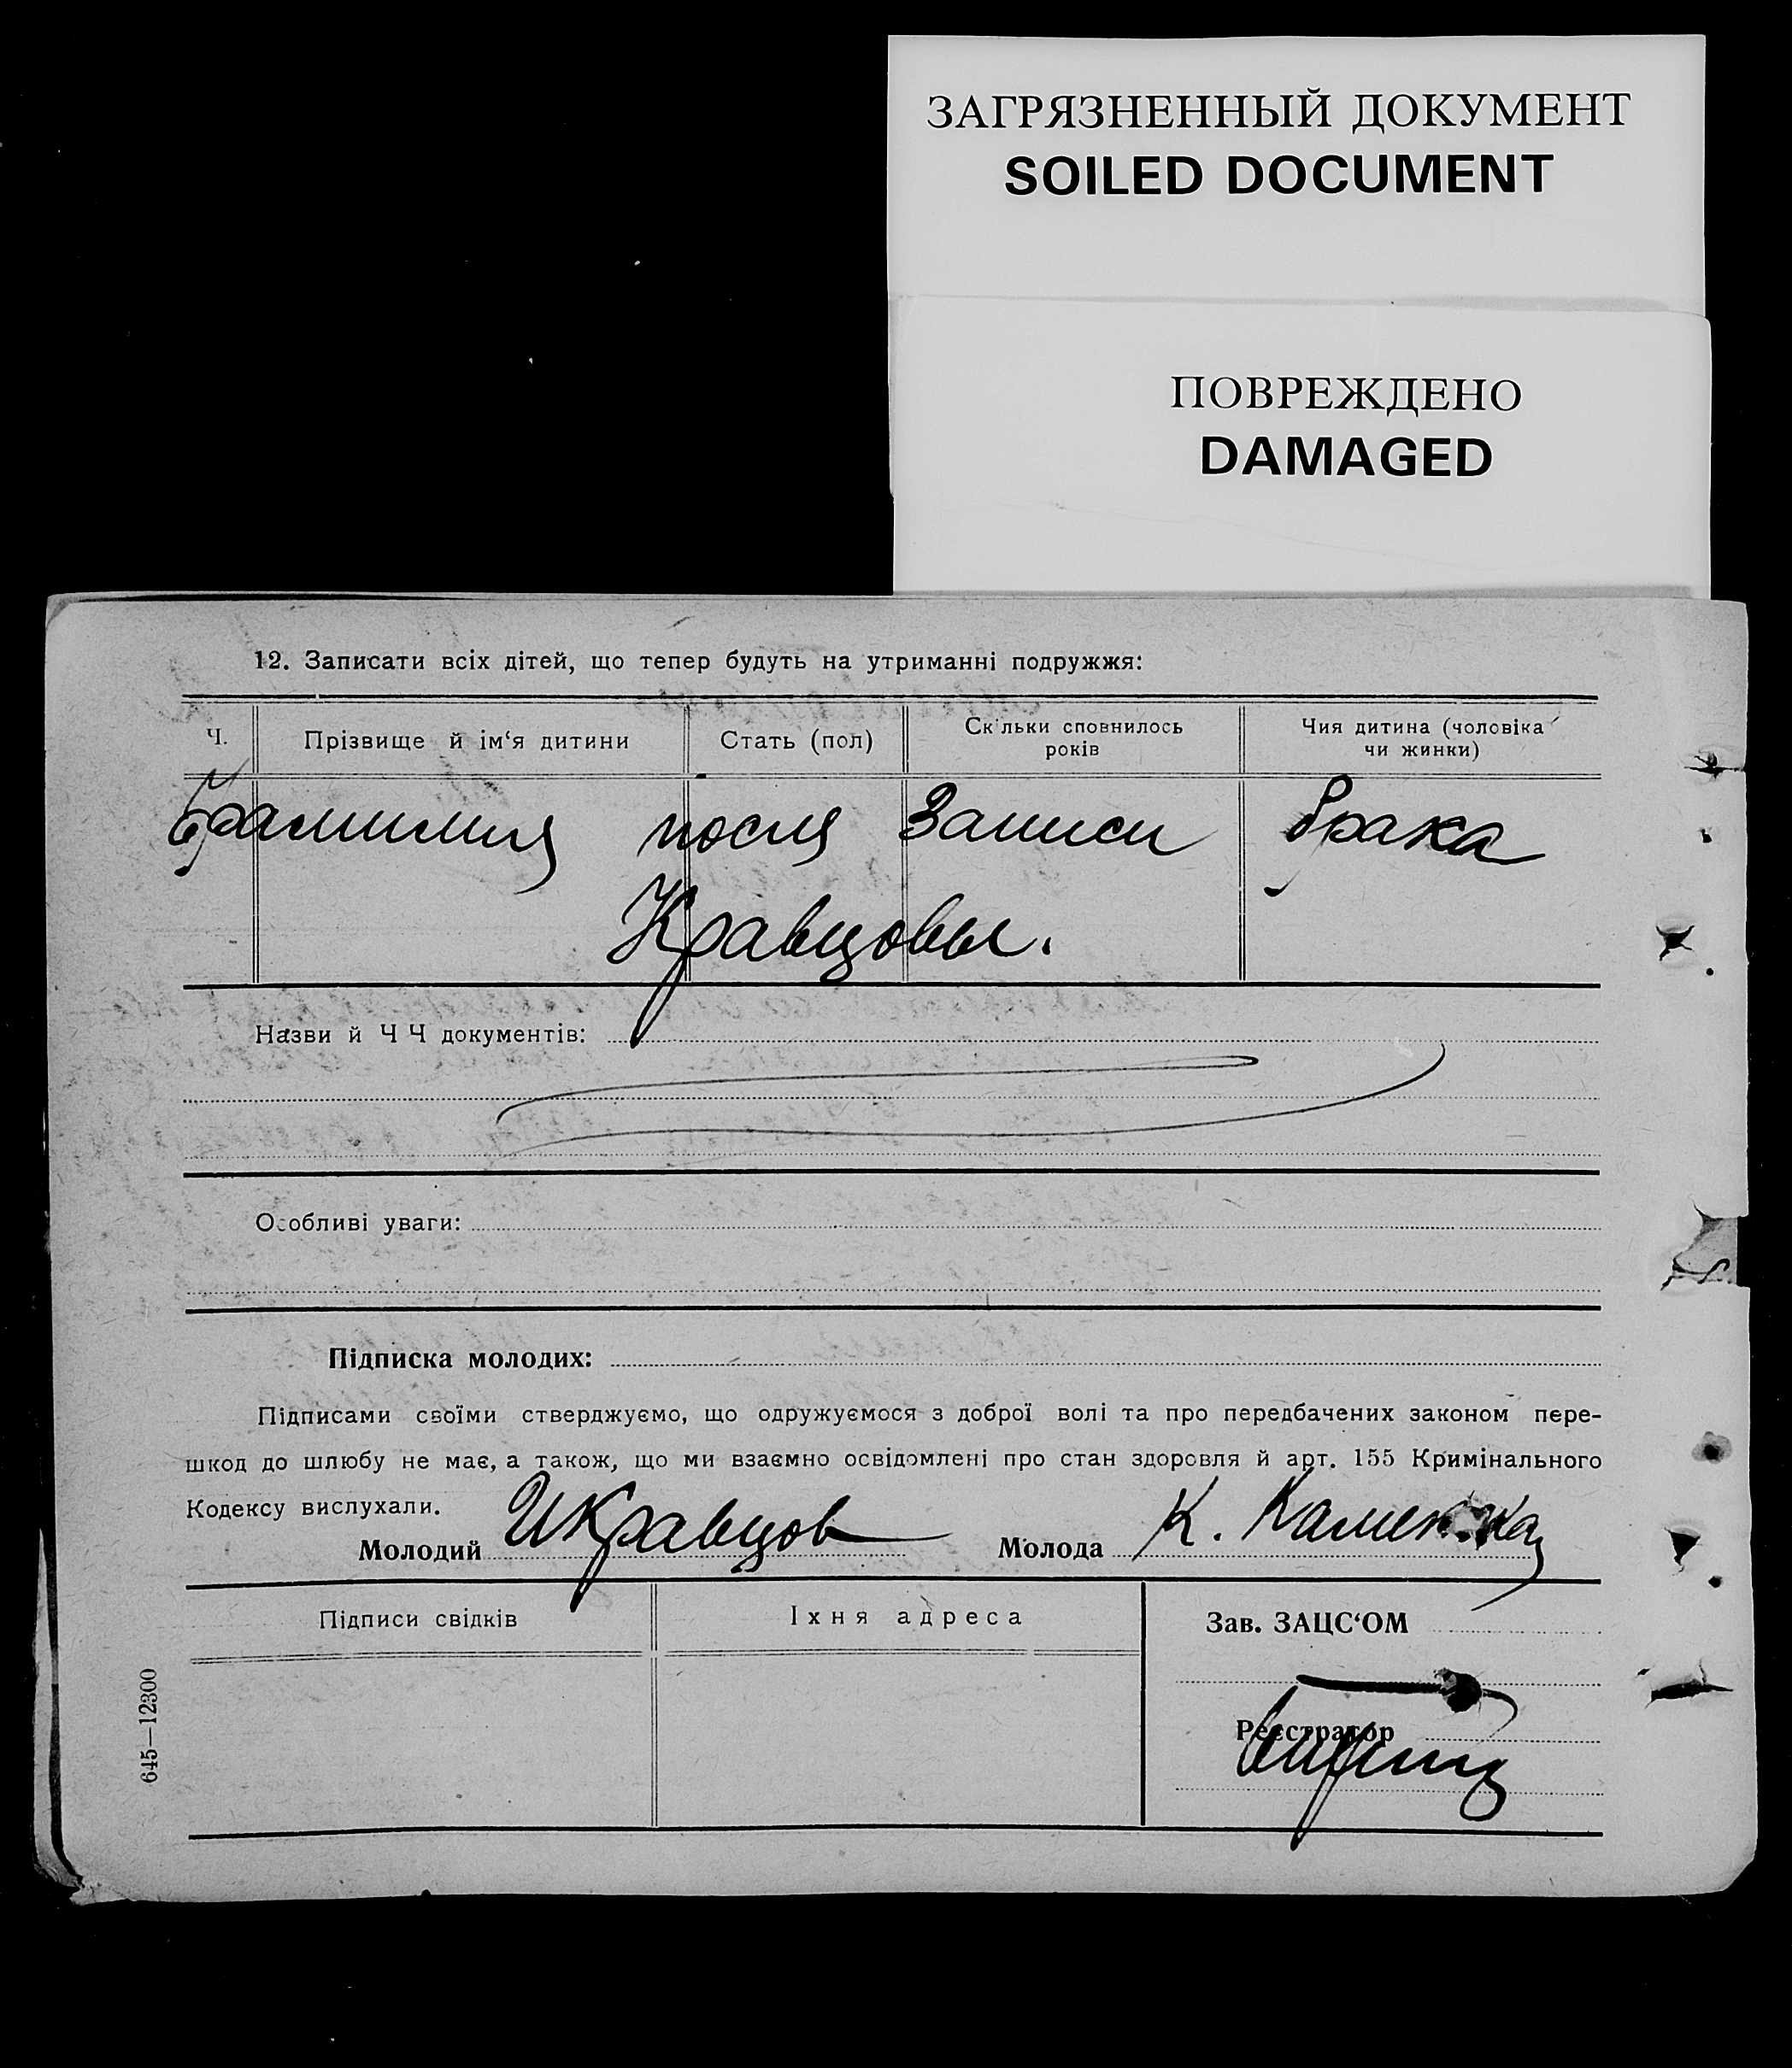 ЗАГРЯЗНЕННЫЙ ДОКУМЕНТ
SOILED DOCUMENT
ПОВРЕЖДЕНО
DAMAGED
12. Записати всіх дітей, що тепер будуть на утриманні подружжя:
Ч. Прізвище й ім‘я дитини Стать (пол) Скільки сповнилось років Чия дитина (чоловіка чи жинки)
Фамилия после записи брака
Кравцовы.
Назви й Ч Ч документів:
Особливі уваги:
Підписка молодих:
Підписами своїми стверджуємо, що одружуємося з доброї волі та про передбачених законом пере-
шкод до шлюбу не має, а також, що ми взаємно освідомлені про стан здоровля й арт. 155 Кримінального
Кодексу вислухали.
Молодий ИКравцов Молода К.
Підписи свідків Їхня адреса Зав. ЗАЦС‘ОМ
Реєстратор
645—12300